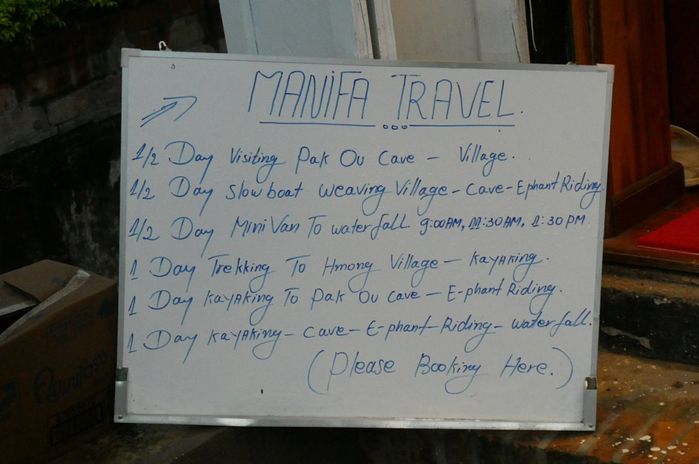 MANIFA TRAVEL.
1/2 Day Visiting Pak Ou Cave – Village.
1/2 Day Slowboat Weaving Village – Cave – Ephant Riding.
1/2 Day Mini Van To waterfall 9:00AM, 11:30AM, 1:30PM
1 Day Trekking To Hmong Village – Kayaking.
1 Day Kayaking To Pak Ou Cave – E-phant Riding.
1 Day Kayaking – Cave – E-phant – Riding – waterfall.
(Please Booking Here.)